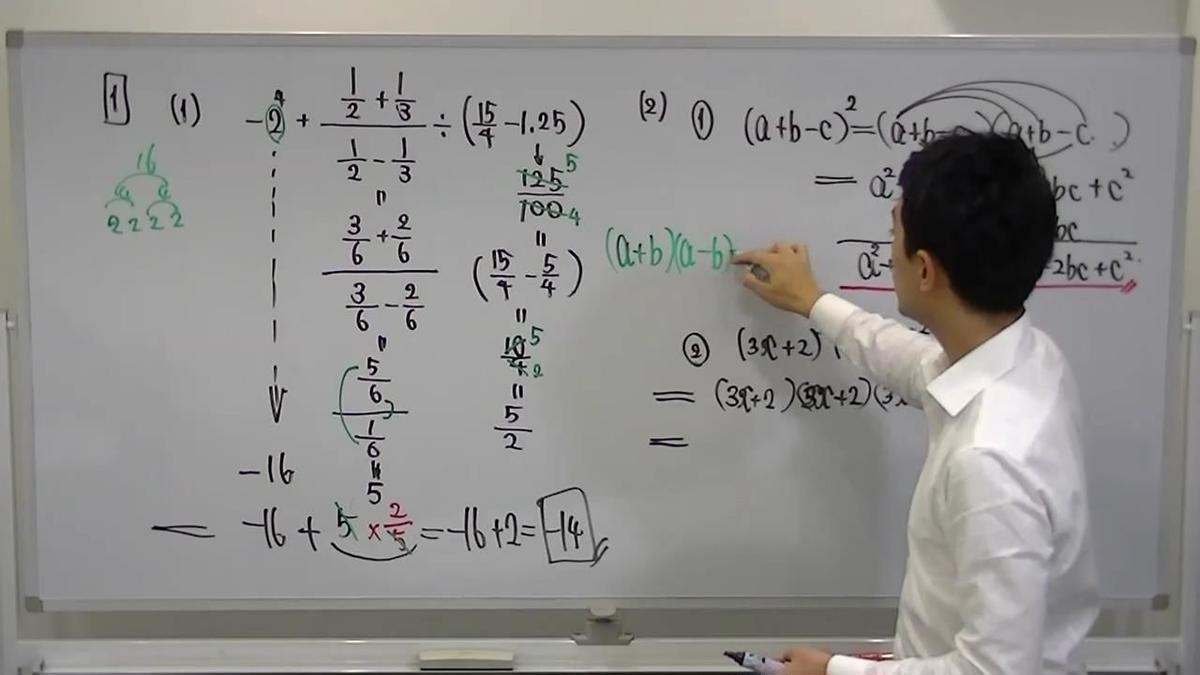 1 (1) -2⁴ + (1/2 + 1/3)/(1/2 - 1/3) ÷ (15/4 - 1.25)
16
4 4
2 2 2 2
↓
125/100 5/4
=
(3/6 + 2/6)/(3/6 - 2/6) (15/4 - 5/4)
= =
10/4 5/2
=
(5/6)/(1/6) 5/2
=
-16 5
= -16 + 5 × 2/5 = -16+2 = -14
(2) ① (a+b-c)² = (a+b-c)(a+b-c)
= a² bc + c²
bc
a² -2bc+c²
(a+b)(a-b)=
② (3x+2)
= (3x+2)(3x+2)(3x
=